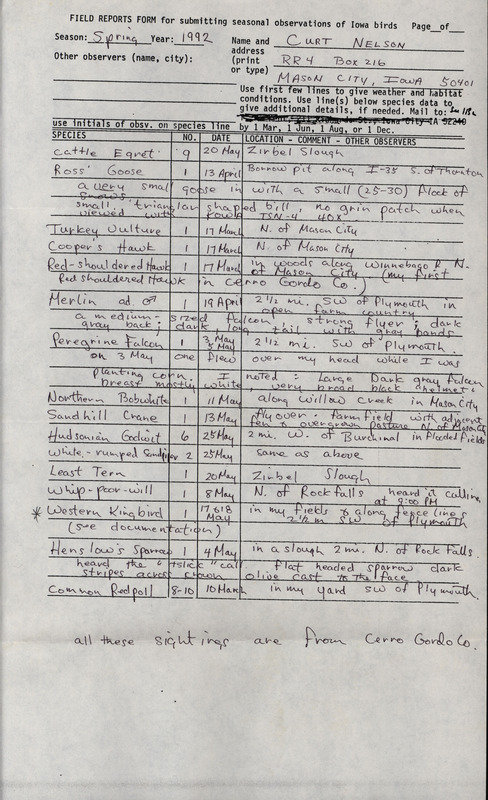 FIELD REPORTS FORM for submitting seasonal observations of Iowa birds Page__of__
Season: Spring Year: 1992 Name and address (print or type) CURT NELSON
Other observers (name, city): RR4 Box 216
MASON CITY, IOWA 50401
Use first few lines to give weather and habitat
conditions. Use line(s) below species data to
give additional details, if needed. Mail to:
use initials of obsv. on species line by 1 Mar, 1 Jun, 1 Aug, or 1 Dec.
SPECIES NO. DATE LOCATION - COMMENT - OTHER OBSERVERS
Cattle Egret 9 20 May Zirbel Slough
Ross' Goose 1 13 April Borrow pit along I-35 S. of Thornton
a very small goose in with a small (25-30) flock of
Snows
small triangular shaped bill, no grin patch when
viewed with Kowa TSN-4 40X
Turkey Vulture 1 17 March N. of Mason City
Cooper's Hawk 1 17 March N. of Mason City
Red-shouldered Hawk 1 17 March in woods along Winnebago R. N.
of Mason City (my first
Red shouldered Hawk in Cerro Gordo Co.)
Merlin ad. ♂ 1 19 April 2 1/2 mi. SW of Plymouth in
open farm country
a medium-sized falcon strong flyer; dark
gray back; dark, long tail with gray bands
Peregrine Falcon 1 3 May 5 May 2 1/2 mi. SW of Plymouth.
on 3 May one flew over my head while I was
planting corn. I noted: Large Dark gray falcon
breast mostly white very broad black "helmet"
Northern Bobwhite 1 11 May along Willow Creek in Mason City
Sandhill Crane 1 13 May flyover - farm field with adjacent
fen & overgrown pasture N. of Mason City
Hudsonian Godwit 6 25 May 2 mi. W. of Burchinal in flooded fields
White-rumped Sandpiper 2 25 May same as above
Least Tern 1 20 May Zirbel Slough
Whip-poor-will 1 8 May N. of Rock Falls heard it calling
at 9:00 PM
* Western Kingbird 1 17 & 18 May in my fields & along fence lines
2 1/2 m SW of Plymouth
(see documentation)
Henslow's Sparrow 1 4 May in a slough 2 mi. N. of Rock Falls.
heard the "tslick" call flat headed sparrow dark
stripes across crown olive cast to the face
Common Redpoll 8-10 10 March in my yard SW of Plymouth.
all these sightings are from Cerro Gordo Co.